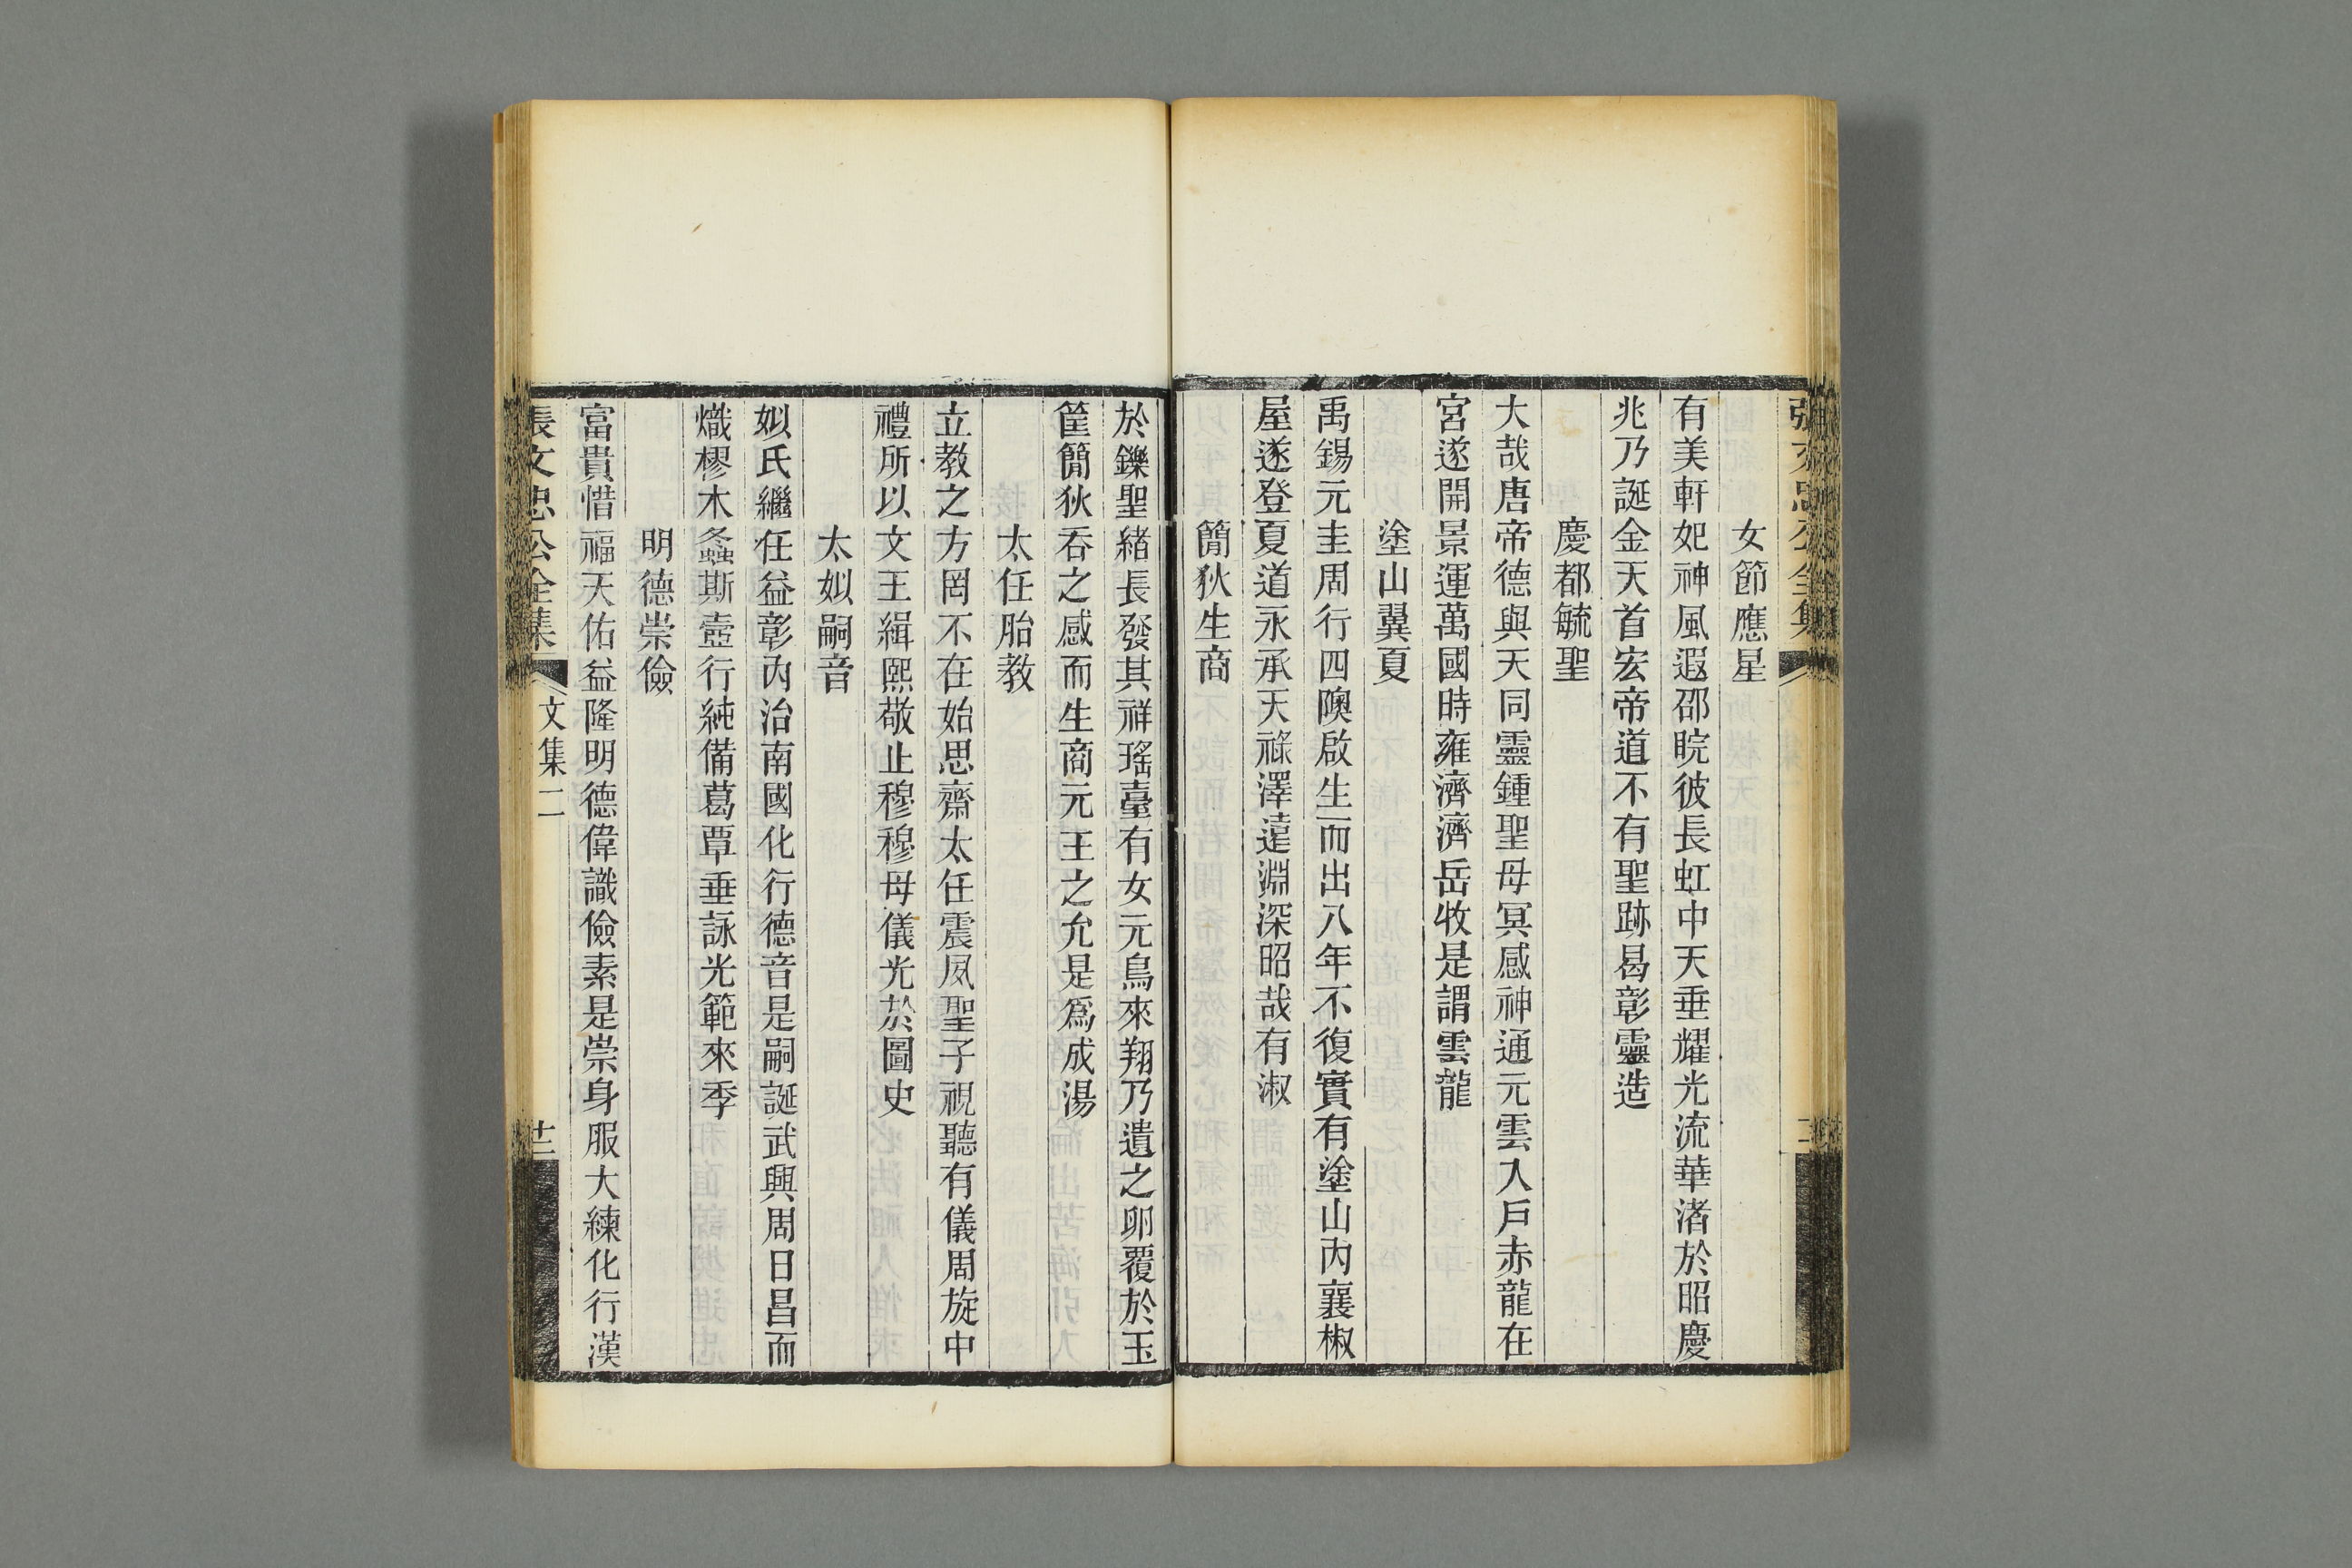 女節應星
有美軒妃神風遐邵睆彼長虹中天垂耀光流華渚於昭慶
兆乃誕金天首宏帝道不有聖跡曷彰靈造
慶都毓聖
大哉唐帝德與天同靈鍾聖母冥感神通元雲入戶赤龍在
宮遂開景運萬國時雍濟濟岳牧是謂雲龍
塗山翼夏
禹錫元圭周行四隩啟生而出八年不復實有塗山內襄椒
屋遂登夏道永承天祿澤遠淵深昭哉有淑
簡狄生商
於鑠聖緒長發其祥瑤臺有女元鳥來翔乃遺之卵覆於玉
筐簡狄吞之感而生商元王之允是爲成湯
太任胎教
立教之方罔不在始思齋太任震夙聖子視聽有儀周旋中
禮所以文王緝熙敬止穆穆母儀光於圖史
太姒嗣音
姒氏繼任益彰內治南國化行德音是嗣誕武興周日昌而
熾樛木螽斯壼行純備葛覃垂詠光範來季
明德崇儉
富貴惜福天佑益隆明德偉識儉素是崇身服大練化行漢
張文忠公全集 文集二 十二